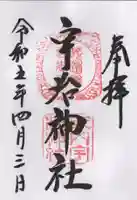 奉拝
宇太神社
令和五年四月三日